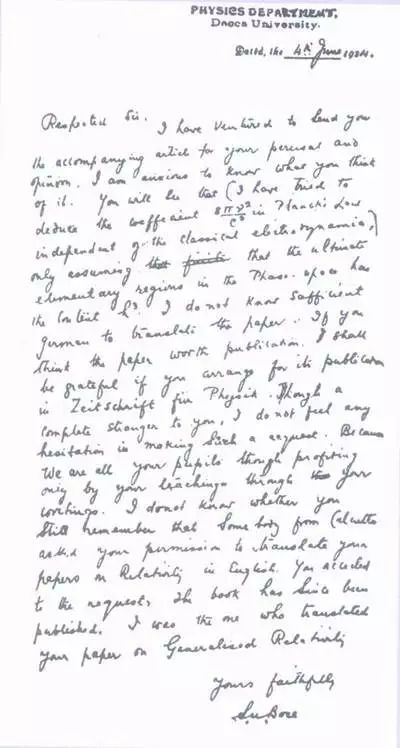 PHYSICS DEPARTMENT,
Dacca University.
Dated, the 4th June 1924.
Respected Sir. I have ventured to send you
the accompanying article for your perusal and
opinion. I am anxious to know what you think
of it. You will see that I have tried to
deduce the coefficient 8πν²/c³ in Planck's Law
independent of the classical electrodynamics,
only assuming that the ultimate
elementary regions in the Phase-space has
the content h³. I do not know sufficient
german to translate the paper. If you
think the paper worth publication. I shall
be grateful if you arrange for its publication
in Zeitschrift für Physik. Though a
complete stranger to you, I do not feel any
hesitation in making such a request. Because
we are all your pupils though profiting
only by your teachings through your
writings. I donot know whether you
still remember that somebody from Calcutta
asked your permission to translate your
papers on Relativity in English. You acceded
to the request. The book has since been
published. I was the one who translated
your paper on Generalised Relativity
Yours faithfully
S.N.Bose